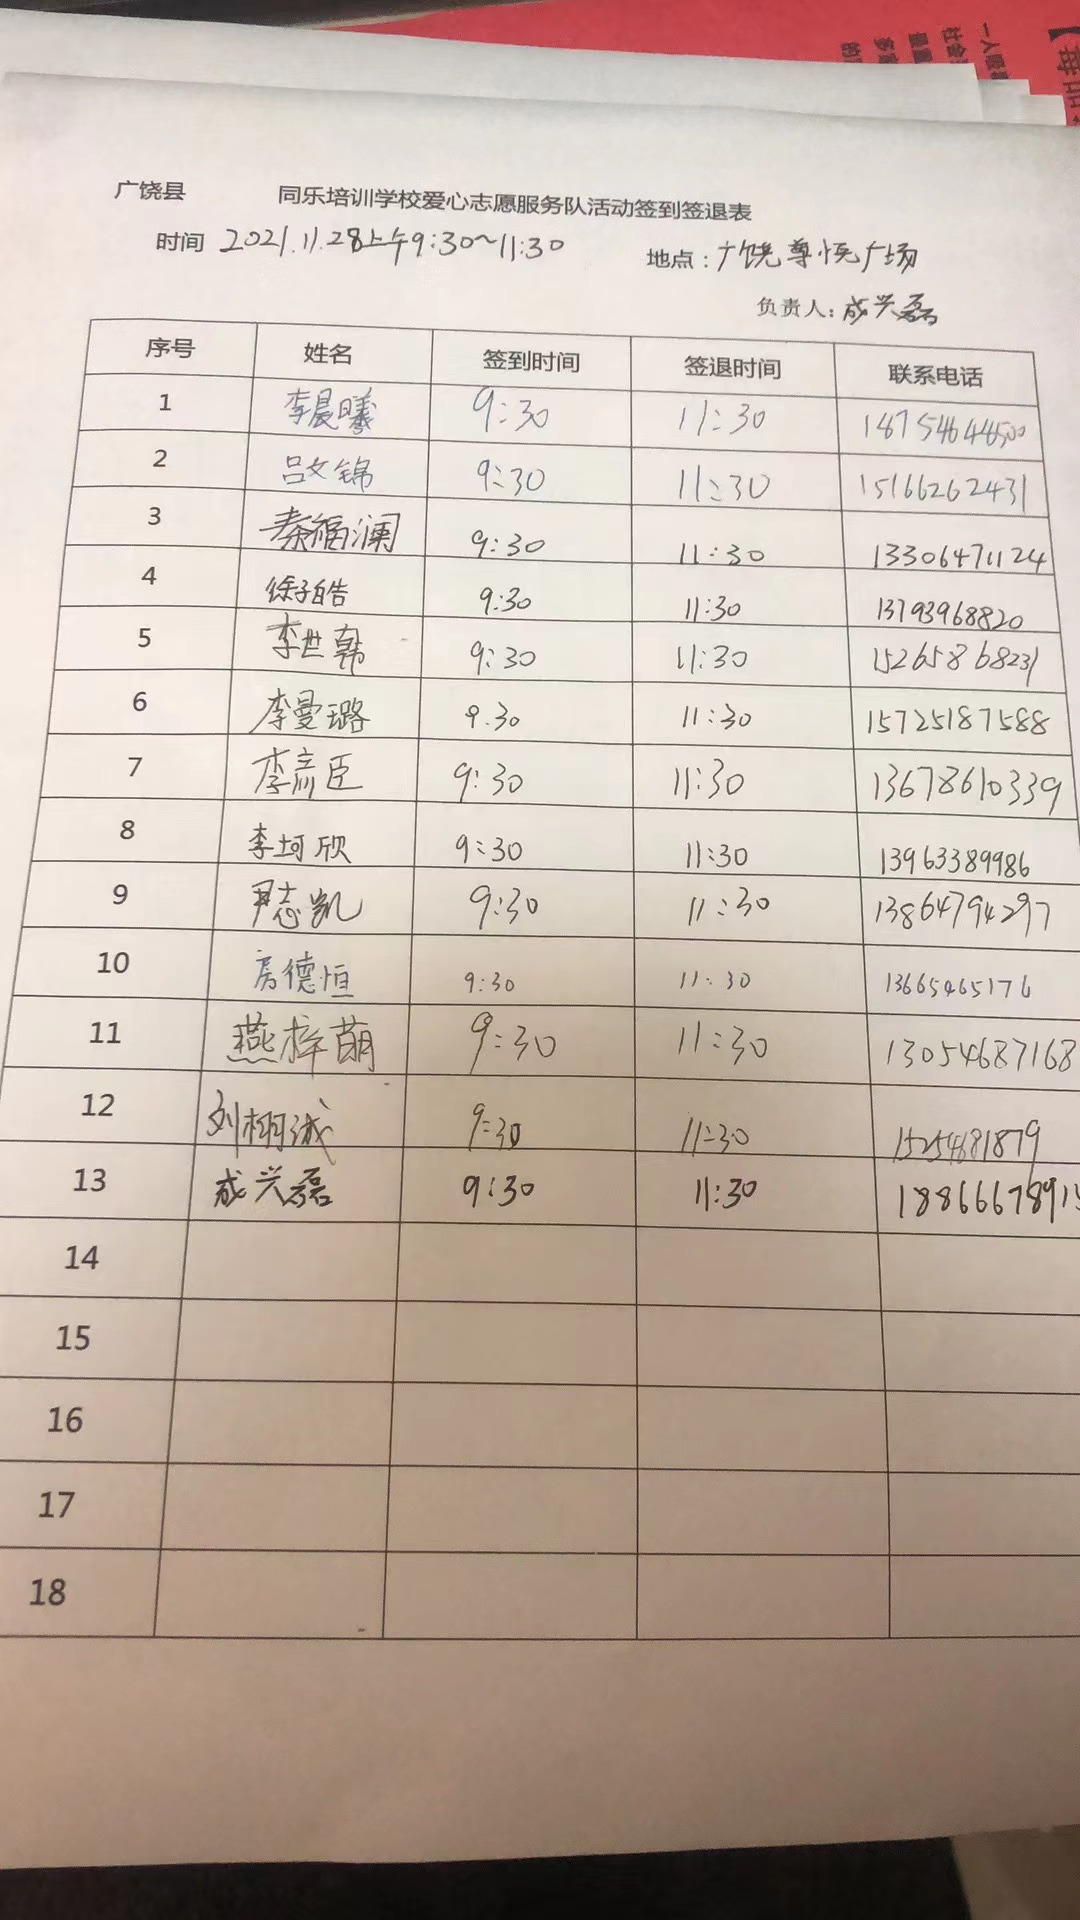 广饶县 同乐培训学校爱心志愿服务队活动签到签退表
时间 2021.11.28上午9:30~11:30 地点：广饶尊悦广场
负责人：成兴磊
序号 姓名 签到时间 签退时间 联系电话
1 李晨曦 9:30 11:30 18754644500
2 吕文锦 9:30 11:30 15166262431
3 秦福澜 9:30 11:30 13306471124
4 徐子皓 9:30 11:30 13793968820
5 李世韩 9:30 11:30 15265868231
6 李曼璐 9.30 11:30 15725187588
7 李彦臣 9:30 11:30 13678610339
8 李珂欣 9:30 11:30 13963389986
9 尹志凯 9:30 11:30 13864794297
10 房德恒 9:30 11:30 13665465176
11 燕梓萌 9:30 11:30 13054687168
12 刘栩诚 9:30 11:30 15254681879
13 成兴磊 9:30 11:30
14
15
16
17
18